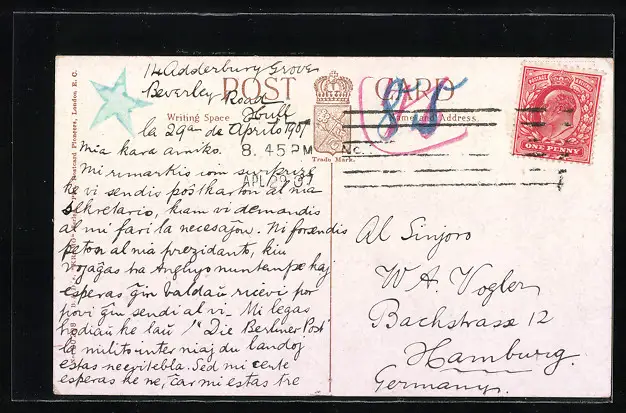 14 Adderbury Grove
Beverley Road
Hull
la 29an de Aprilo 1907
POST CARD
Writing Space
Name and Address.
Trade Mark.
8.45 PM
APL 29 07
85
ONE PENNY
Postcard Pioneers, London, E. C.
Mia kara amiko.
Mi rimarkis kom surprizo
ke vi sendis poŝtkarton al nia
sekretario, kiam vi demandis
al mi fari la necesaĵon. Ni forsendis
peton al nia prezidanto, kiu
vojaĝas tra Anglujo nuntempe kaj
esperas ĝin baldaŭ ricevi por
povi ĝin sendi al vi. Mi legas
hodiaŭ ke laŭ "Die Berliner Post"
la milito inter niaj du landoj
estas neevitebla. Sed mi certe
esperas ke ne, ĉar mi estas tre
Al Sinjoro
W. A. Vogler
Bachstrasse 12
Hamburg.
Germany.